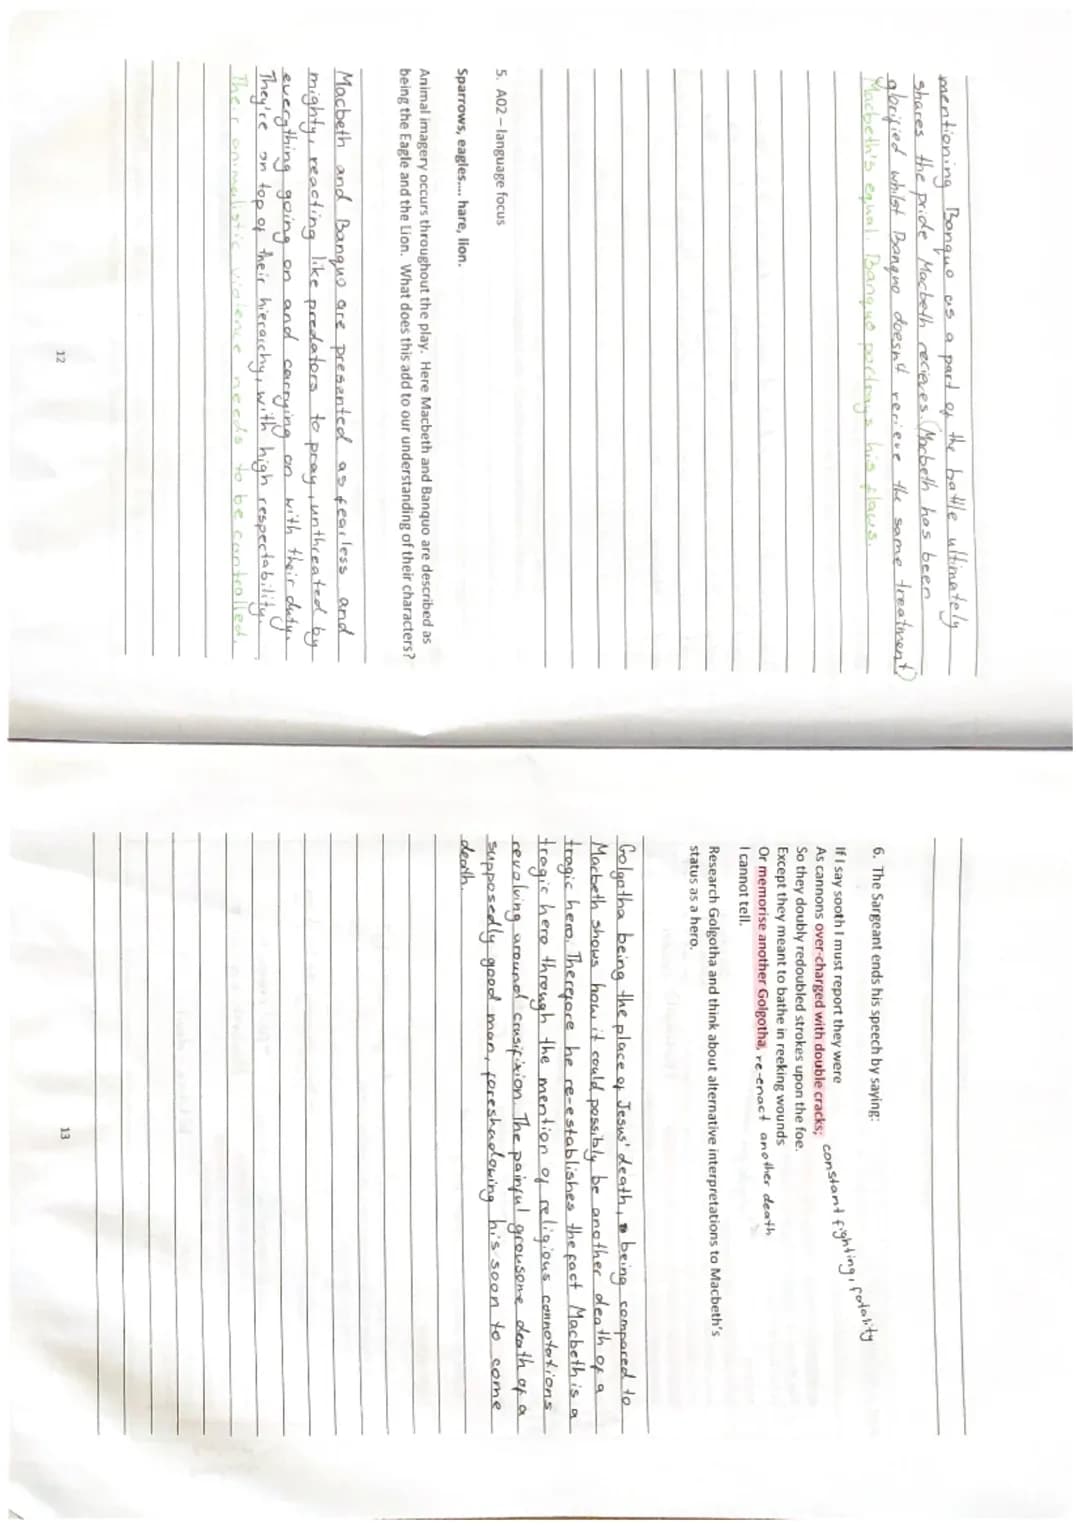 mentioning Banquo as a part of the battle ultimately
shares the pride Macbeth recieves. (Macbeth has been
glorified whilst Banquo doesn't recieve the same treatment)
Macbeth's equal. Banquo portrays his flaws.
5. A02 – language focus
Sparrows, eagles.... hare, lion.
Animal imagery occurs throughout the play. Here Macbeth and Banquo are described as
being the Eagle and the Lion. What does this add to our understanding of their characters?
Macbeth and Banquo are presented as fearless and
mighty, reacting like predators to pray, unthreated by
everything going on and carrying on with their duty.
They're on top of their hierarchy, with high respectability.
Their animalistic violence needs to be controlled.
12
6. The Sargeant ends his speech by saying:
If I say sooth I must report they were
As cannons over-charged with double cracks; constant fighting, fatality
So they doubly redoubled strokes upon the foe.
Except they meant to bathe in reeking wounds
Or memorise another Golgotha, re-enact another death
I cannot tell.
Research Golgotha and think about alternative interpretations to Macbeth's
status as a hero.
Golgotha being the place of Jesus' death, being compared to
Macbeth shows how it could possibly be another death of a
tragic hero. Therefore he re-establishes the fact Macbeth is a
tragic hero through the mention of religious connotations
revolving around crusifixion. The painful grousome death of a
supposedly good man, foreshadowing his soon to come
death.
13